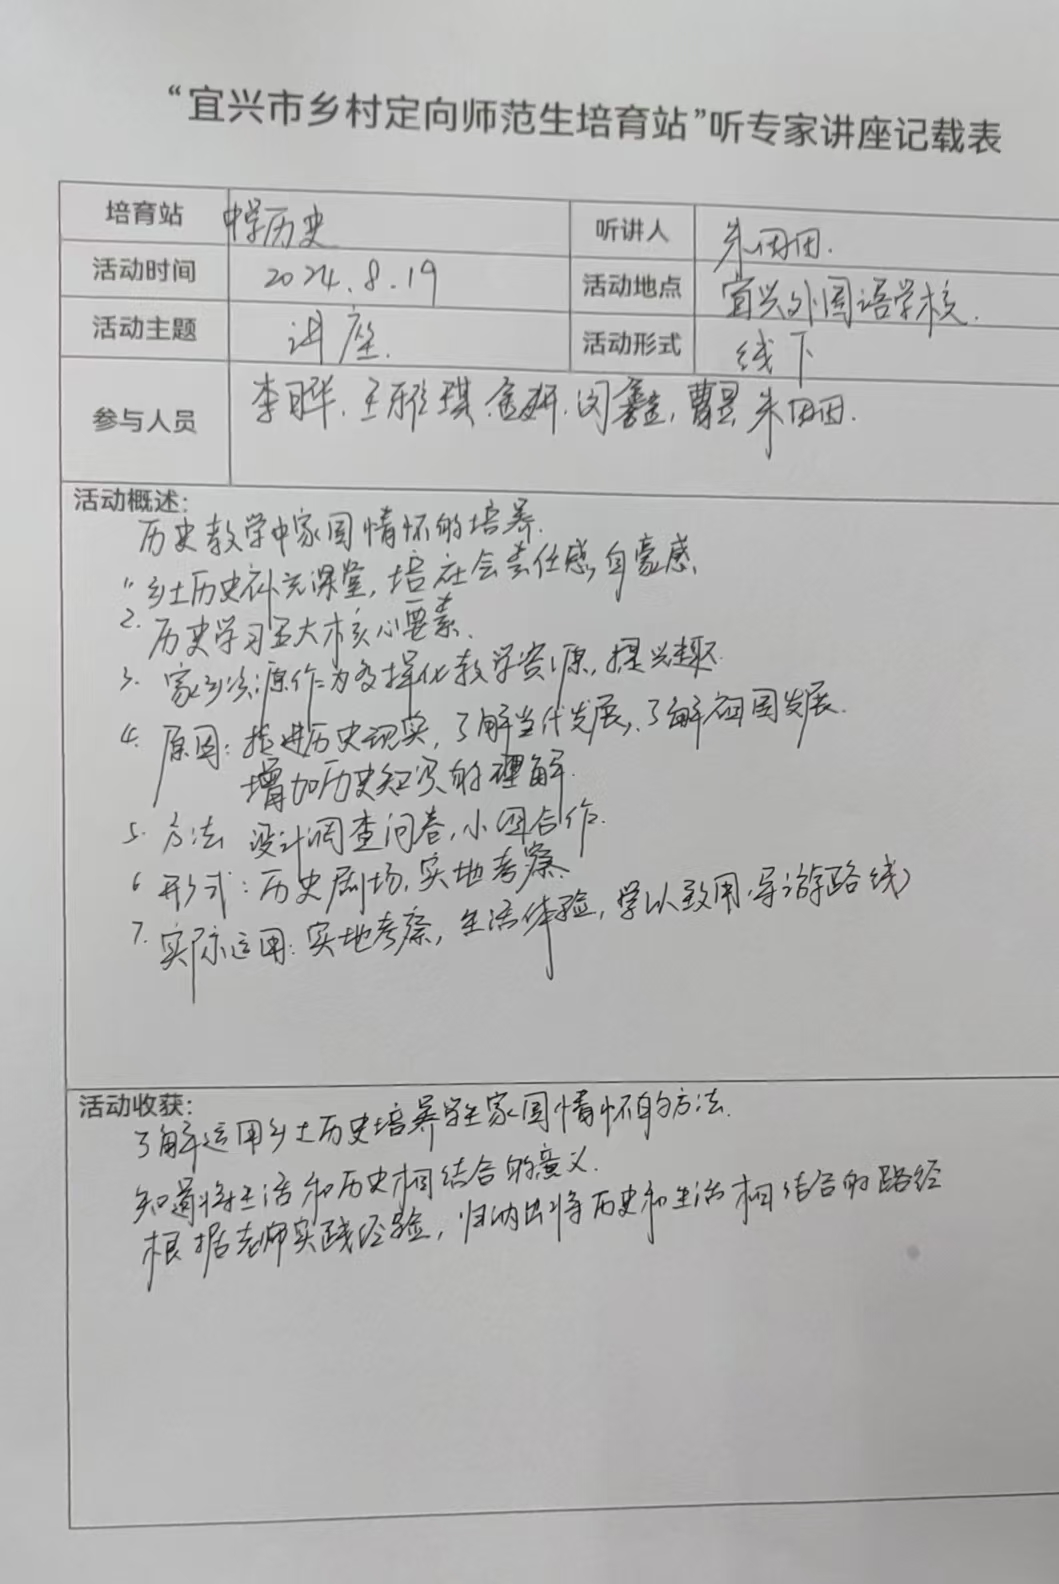 “宜兴市乡村定向师范生培育站”听专家讲座记载表
培育站 中学历史 听讲人 朱田田.
活动时间 2024.8.19 活动地点 宜兴外国语学校.
活动主题 讲座. 活动形式 线下
参与人员 李晔、王雅琪、闵鑫, 曹昱 朱田田.
活动概述:
历史教学中家国情怀的培养.
1、乡土历史补充课堂, 培社会责任感, 自豪感、
2. 历史学习五大核心要素.
3. 家乡资源作为多样化教学资源, 提兴趣.
4. 原因: 推进历史现实, 了解当代发展, 了解祖国发展.
增加历史知识的理解.
5. 方法 设计调查问卷, 小组合作.
6 形式: 历史剧场, 实地考察.
7. 实际运用: 实地考察, 生活体验, 学以致用.导游路线)
活动收获:
了解运用乡土历史培养学生家国情怀的方法.
知道将生活和历史相结合的意义.
根据老师实践经验, 归纳出将历史和生活相结合的路径